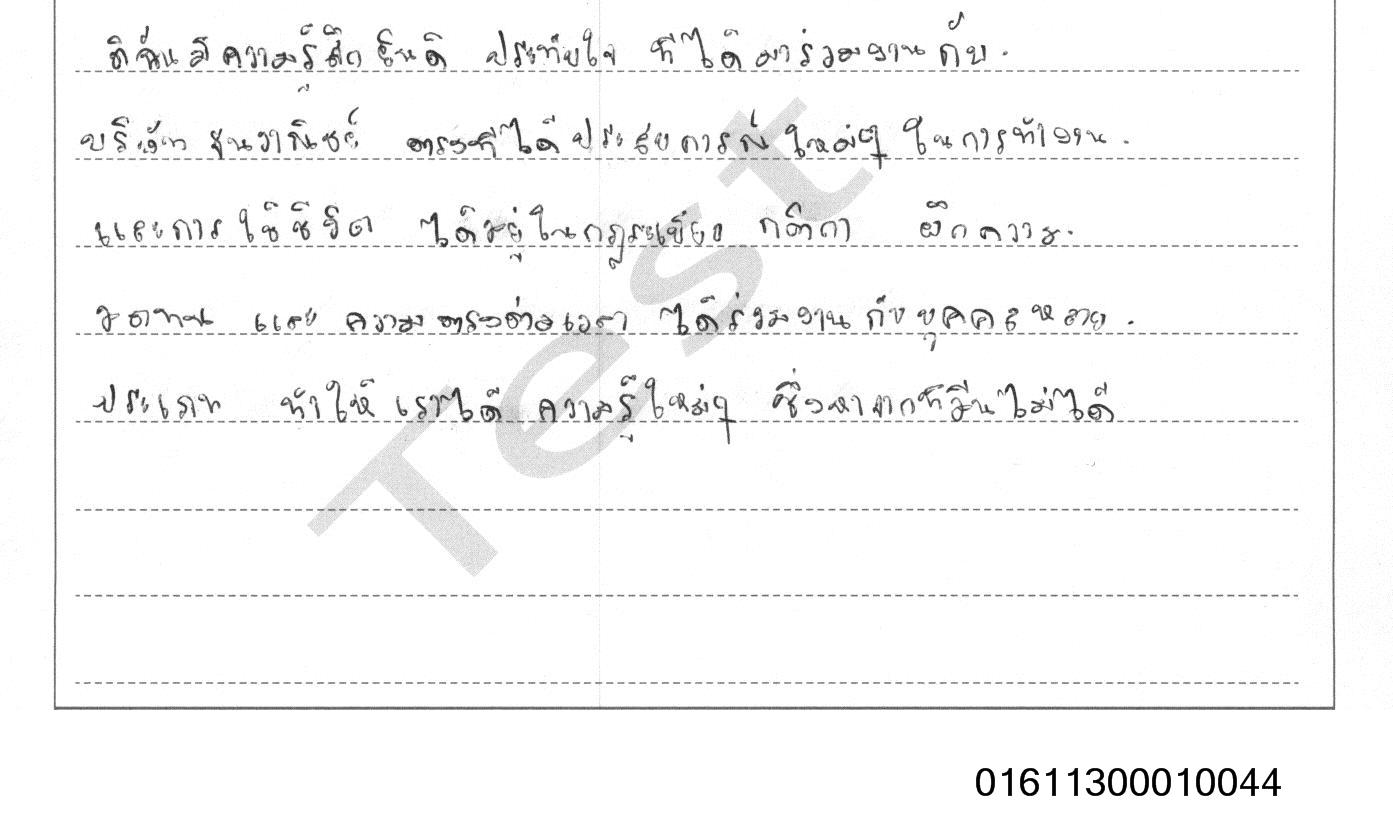 ดิฉันมีความรู้สึกยินดี ประทับใจ ที่ได้มาร่วมงานกับ
บริษัท ตรงที่ได้ประสบการณ์ใหม่ๆ ในการทำงาน
และการใช้ชีวิต ได้อยู่ในกฎระเบียบ กติกา ฝึกความ
อดทน และ ความตรงต่อเวลา ได้ร่วมงานกับบุคคลหลาย
ประเภท ทำให้เราได้ความรู้ใหม่ๆ ซึ่งหาจากที่อื่นไม่ได้
Test
01611300010044